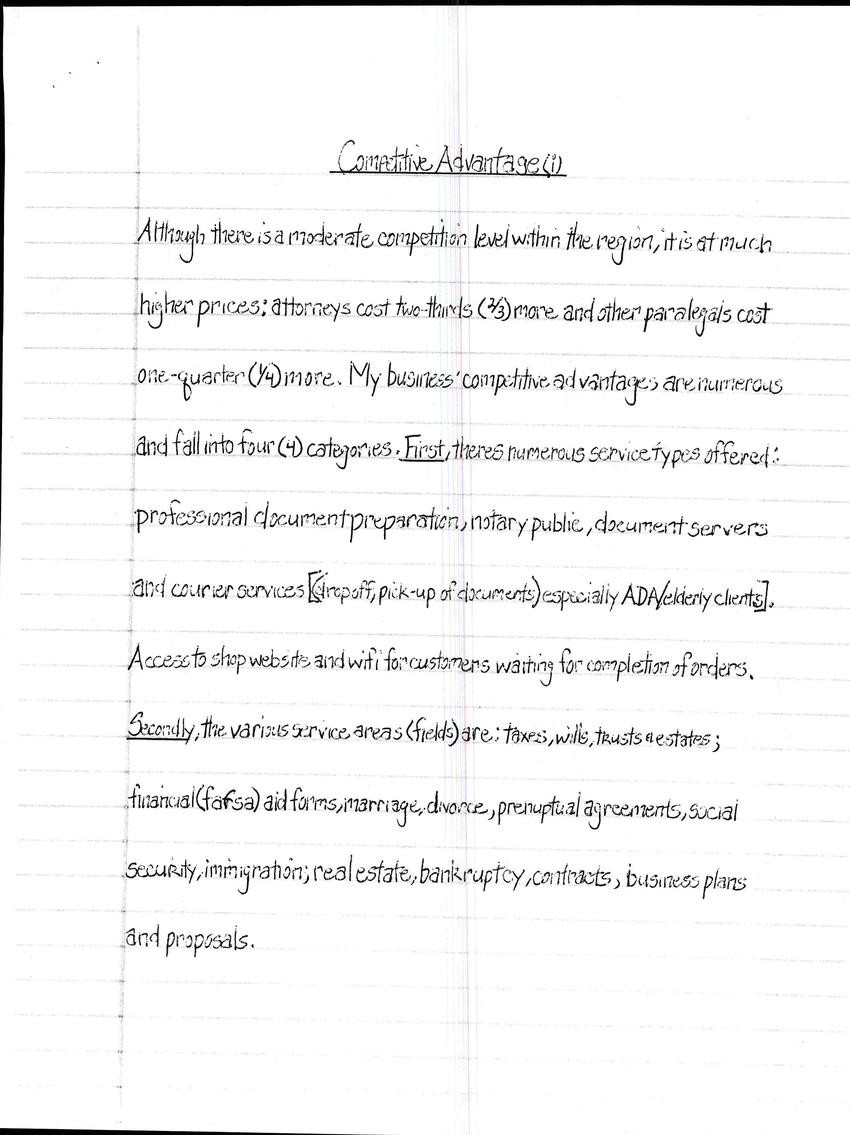 Competitive Advantage(1)
Although there is a moderate competition level within the region, it is at much
higher prices: attorneys cost two-thirds (2/3) more and other paralegals cost
one-quarter (1/4) more. My business' competitive advantages are numerous
and fall into four (4) categories. First, theres numerous service types offered:
professional document preparation, notary public, document servers
and courier services [(drop off, pick-up of documents) especially ADA/elderly clients].
Access to shop website and wifi for customers waiting for completion of orders.
Secondly, the various service areas (fields) are: taxes, wills, trusts & estates;
financial (fafsa) aid forms, marriage, divorce, prenuptual agreements, social
security, immigration; real estate, bankruptcy, contracts, business plans
and proposals.